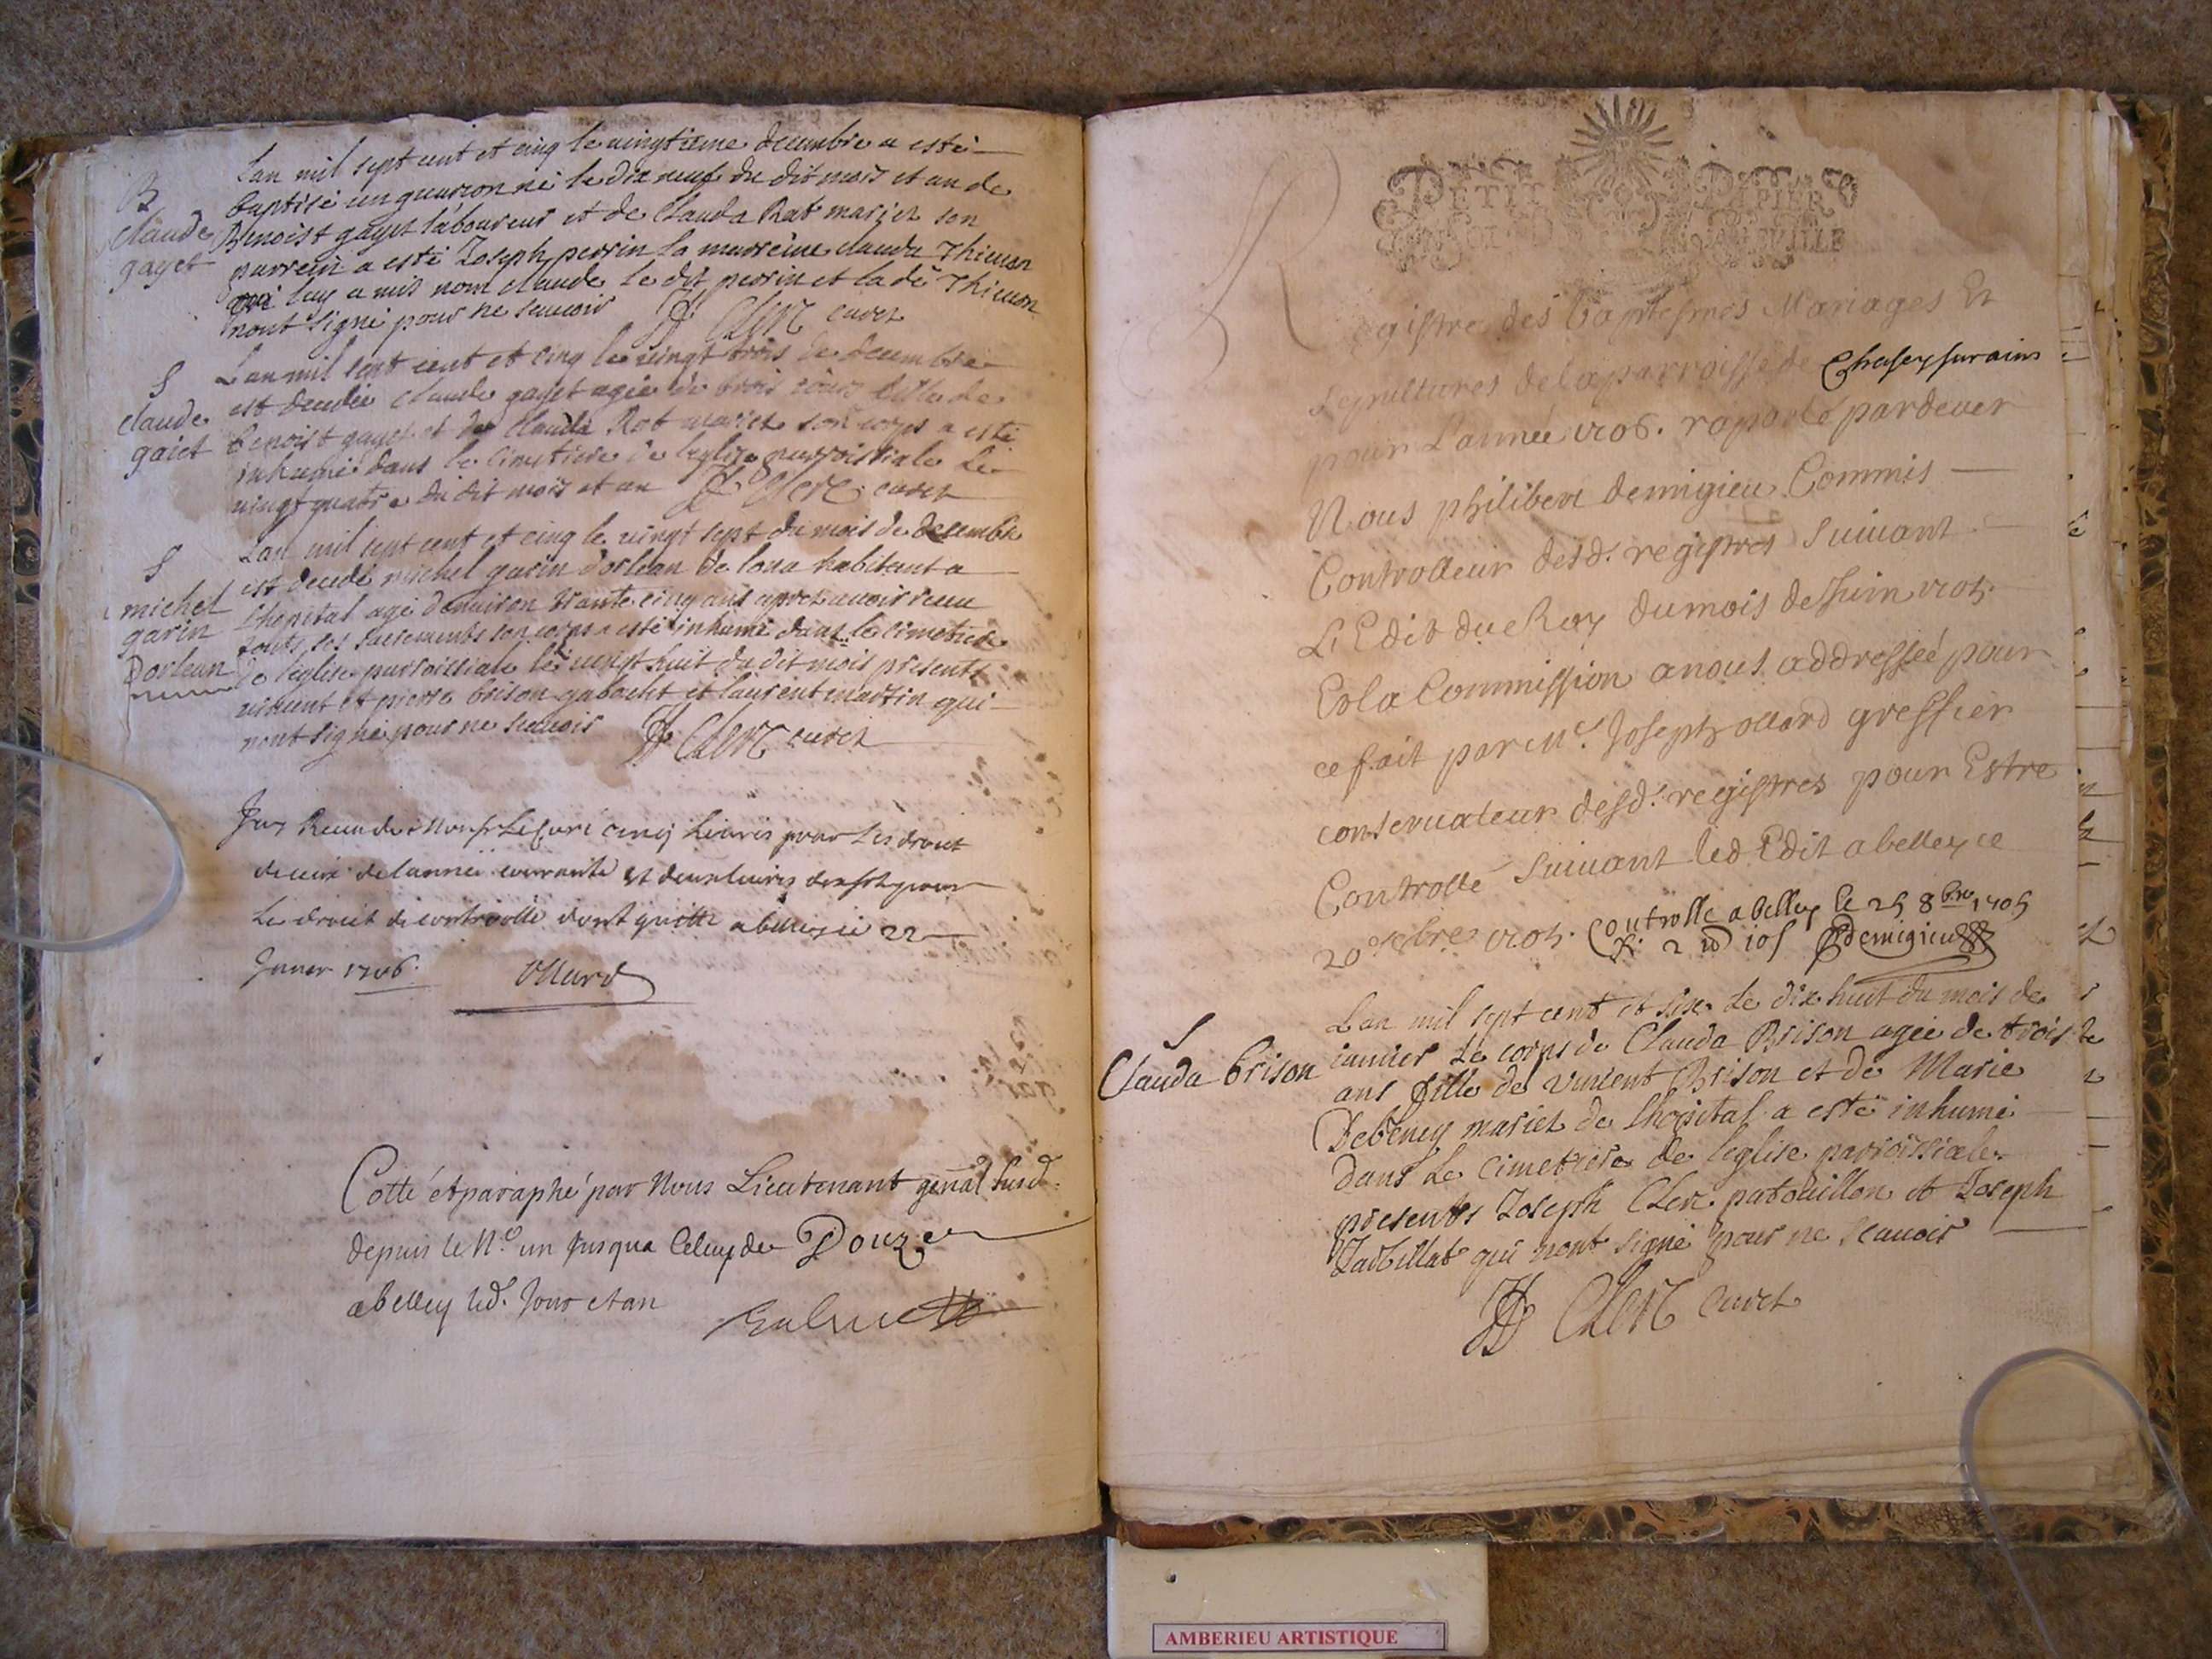 B
claude
gayet
Lan mil sept cent et cinq le vingtieme decembre a esté
baptisé un guarcon né le dix neuf du dit mois et an de
Benoist gayet laboureur et de Clauda Rat mariez son
parrein a esté Joseph perrin la marreine clauda Thieuon
qui luy a mis nom claude le dit perrin et la de Thieuon
nont signé pour ne scauoir Clerc curez
S
claude
gaiet
Lan mil sept cent et cinq le vingt trois de decembre
est decedée claude gayet agée de trois jours fille de
benoist gayet et de Clauda Rat mariez son corps a esté
inhumé dans le cimetiere de leglise parroissiale le
vingt quatre du dit mois et an Clerc curez
S
michel
garin
Dorlean
Lan mil sept cent et cinq le vingt sept du mois de decembre
est decedé michel garin dorlean de habitant a
lhopital agé denuiron trante cinq ans aprez auoir receu
touts ses sacrements son corps a esté inhumé dans le cimetiere
de leglise parroissiale le vingt huit du dit mois presents
vincent et pierre brison et laurent martin qui
nont signé pour ne scauoir Clerc curez
Jay Receu de Monsr Le Curé cinq Liures pour Les droit
de lannée courante et deux liures dix sols pour
Le droit de controolle dont quitte a belley ce 22
Januer 1706. Ollard
Cotté et paraphé par Nous Lieutenant genal susd.
depuis le No. un Jusqua Celuy de Douze
a belley led. Jour et an
PETIT PAPIER
Registre des baptesmes Mariages Et
Sepultures de la parroisse de Chasey sur ains
pour L'année 1706. raporté pardeuer
Nous philibert demigieu Commis
Controlleur desd. registres suiuant
L'Edit du Roy du mois de Juin 1705
Et la Commission a nous addressée pour
ce fait par Me. Joseph ollard greffier
conseruateur desd. registres pour Estre
Controllé suiuant led Edit a belley ce
20e 8bre 1705. Controlle a belley le 25 8bre 1705
Demigieu
S
Clauda brison
Lan mil sept cent et six le dix huit du mois de
ianuier le corps de Clauda Brison agée de trois
ans fille de vincent Brison et de Marie
Debeney mariez de lhopital a esté inhumé
dans le cimetiere de leglise parroissiale
presents Joseph Clerc patouillon et Joseph
qui nont signé pour ne scauoir
Clerc curez
AMBERIEU ARTISTIQUE